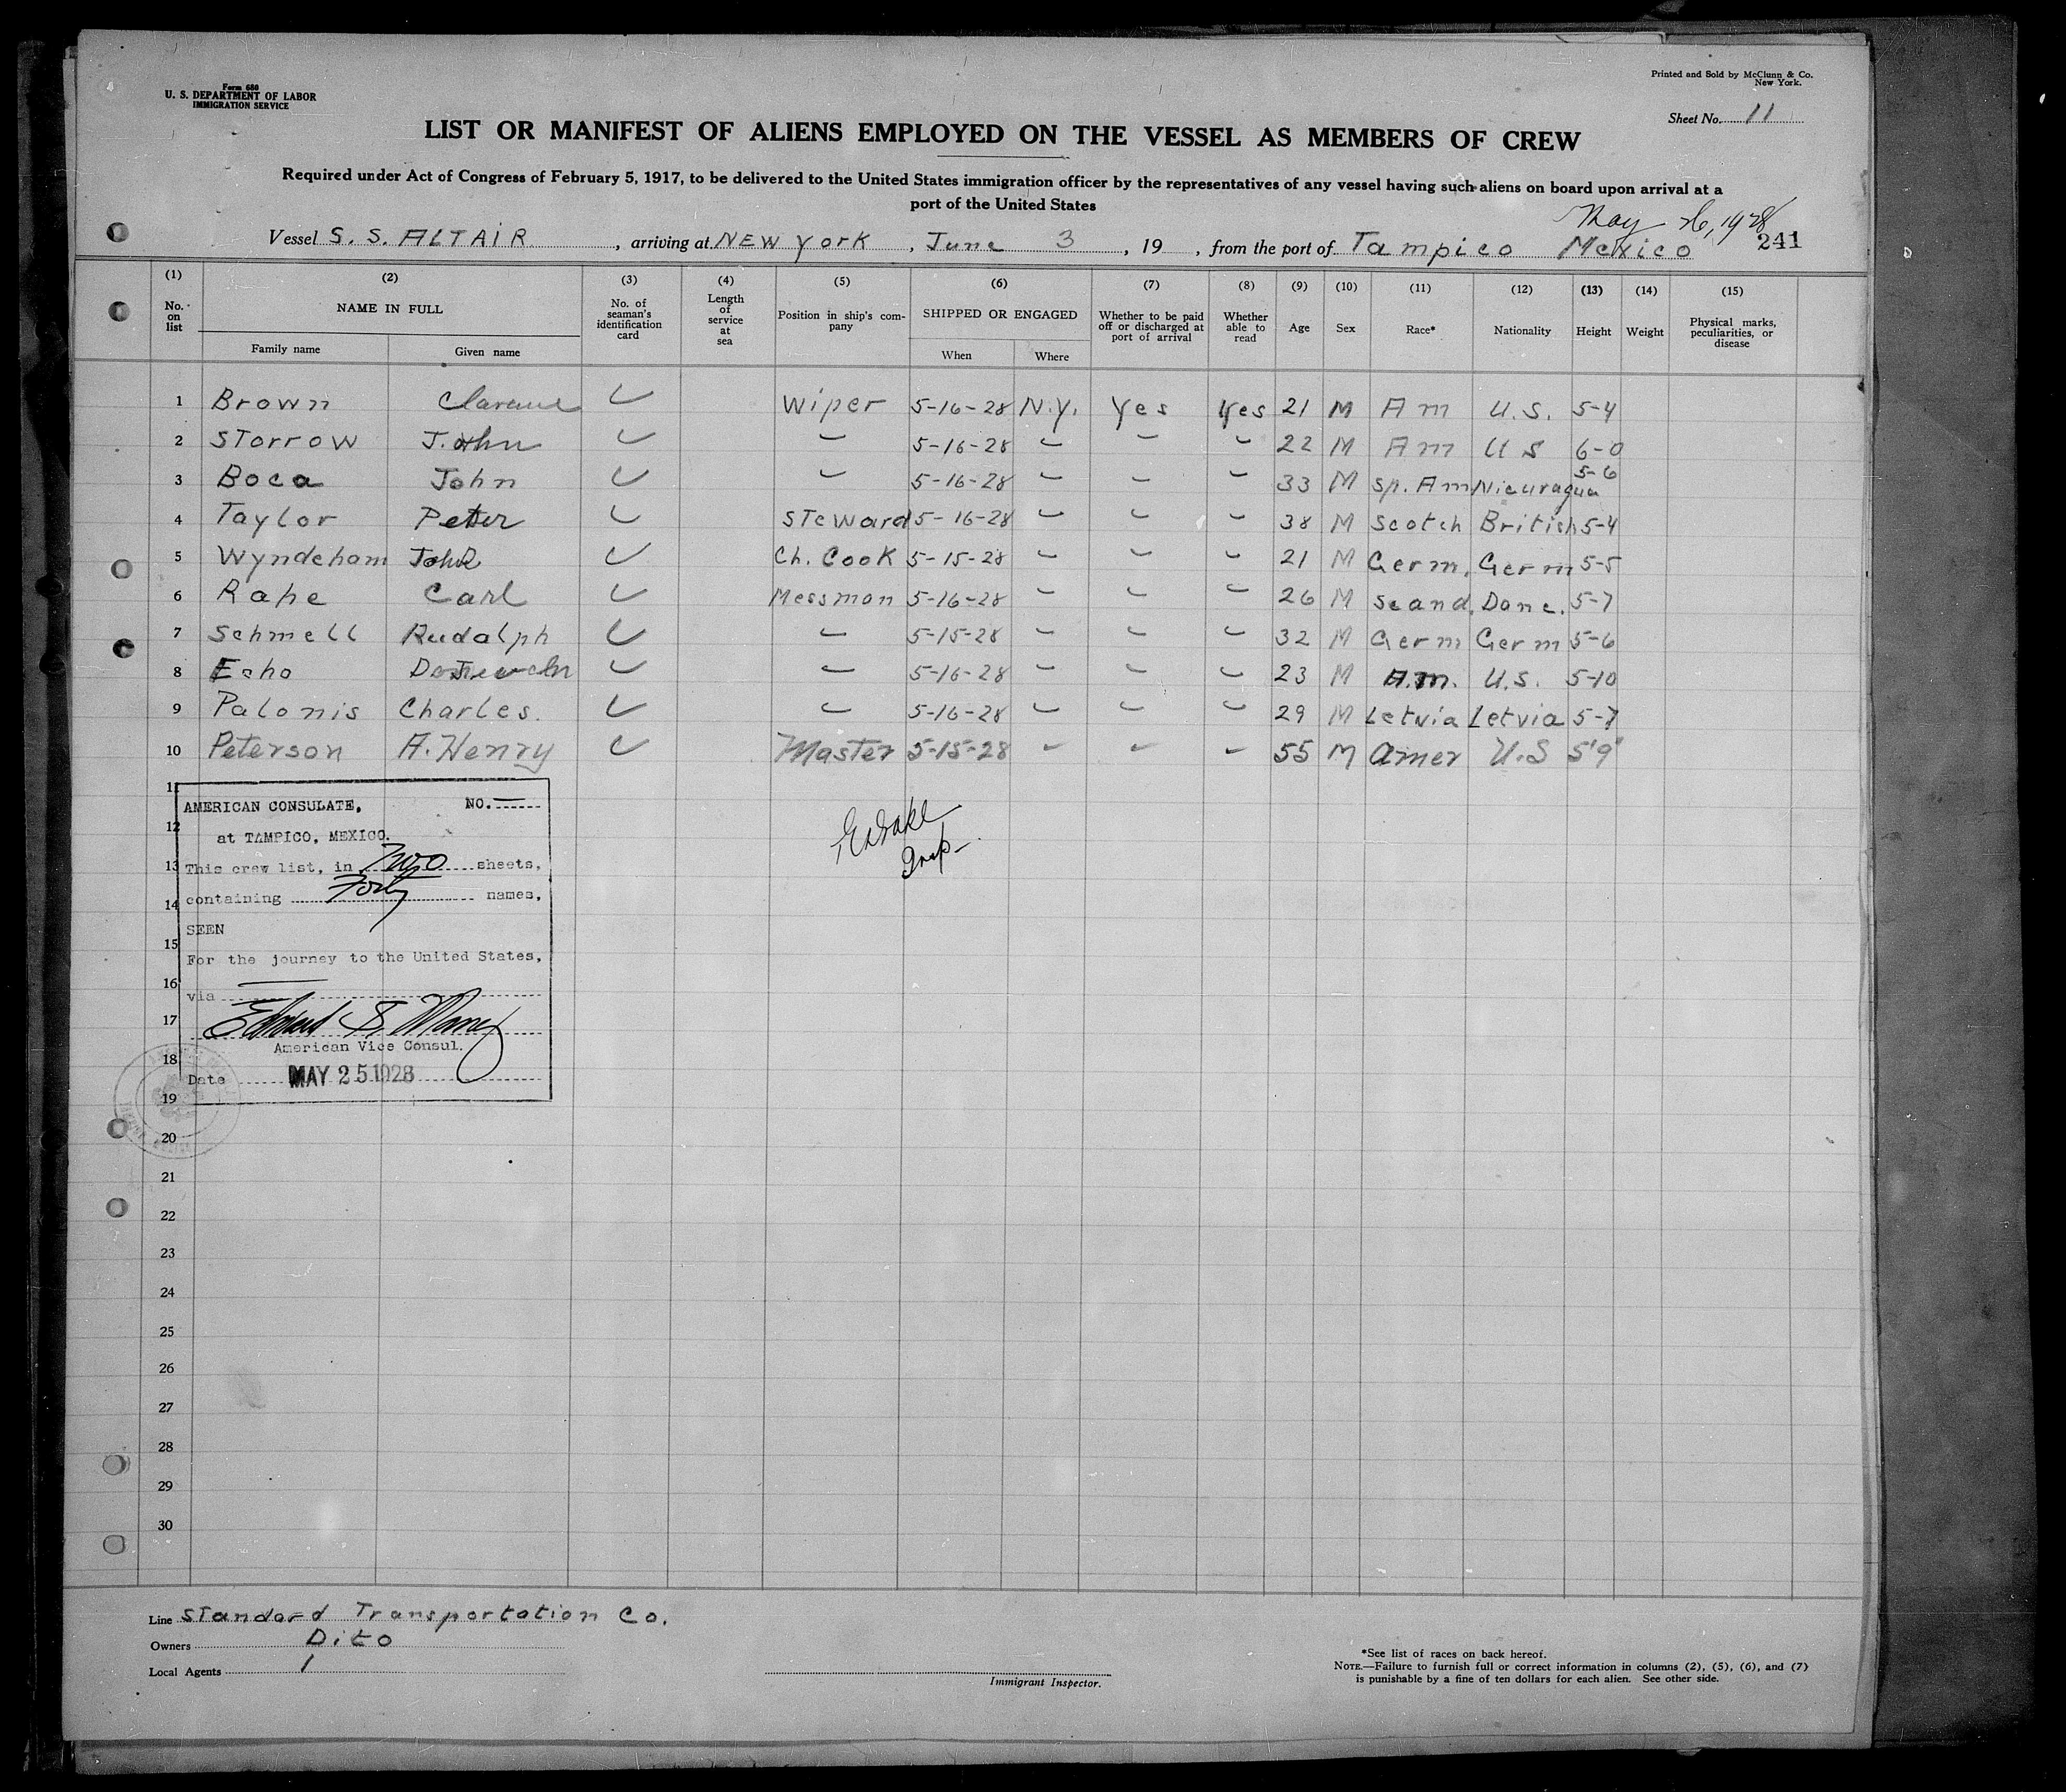 Form 680
U. S. DEPARTMENT OF LABOR
IMMIGRATION SERVICE
Printed and Sold by McClunn & Co.
New York.
Sheet No. 11
LIST OR MANIFEST OF ALIENS EMPLOYED ON THE VESSEL AS MEMBERS OF CREW
Required under Act of Congress of February 5, 1917, to be delivered to the United States immigration officer by the representatives of any vessel having such aliens on board upon arrival at a
port of the United States
May 26, 1928
Vessel S. S. ALTAIR, arriving at NEW York, June 3, 19 , from the port of Tampico Mexico 241
(1) (2) (3) (4) (5) (6) (7) (8) (9) (10) (11) (12) (13) (14) (15)
No. on list NAME IN FULL No. of seaman's identification card Length of service at sea Position in ship's company SHIPPED OR ENGAGED Whether to be paid off or discharged at port of arrival Whether able to read Age Sex Race* Nationality Height Weight Physical marks, peculiarities, or disease
Family name Given name When Where
1 Brown Clarence Wiper 5-16-28 N.Y. Yes Yes 21 M Am U.S. 5-4
2 STorrow John 5-16-28 22 M Am U S 6-0
3 Boca John 5-16-28 33 M Sp. Am Nicuragua 5-6
4 Taylor Peter STeward 5-16-28 38 M Scotch British 5-4
5 Wyndeham John Ch. Cook 5-15-28 21 M Germ. Germ 5-5
6 Rahe Carl Messman 5-16-28 26 M Scand. Dane. 5-7
7 Schmell Rudolph 5-15-28 32 M Germ Germ 5-6
8 Echo 5-16-28 23 M A.m. U.S. 5-10
9 Palonis Charles. 5-16-28 29 M Letvia Letvia 5-7
10 Peterson A. Henry Master 5-15-28 55 M Amer U.S 5'9"
11
AMERICAN CONSULATE, NO.
12
at TAMPICO, MEXICO.
13
This crew list, in Two sheets,
14
containing Forty names,
SEEN
15
For the journey to the United States,
16
via
17
American Vice Consul.
18
Date MAY 25 1928
19
Insp
20
21
22
23
24
25
26
27
28
29
30
Line STandard Transportation Co.
Owners Dito
Local Agents
Immigrant Inspector.
*See list of races on back hereof.
NOTE.—Failure to furnish full or correct information in columns (2), (5), (6), and (7)
is punishable by a fine of ten dollars for each alien. See other side.